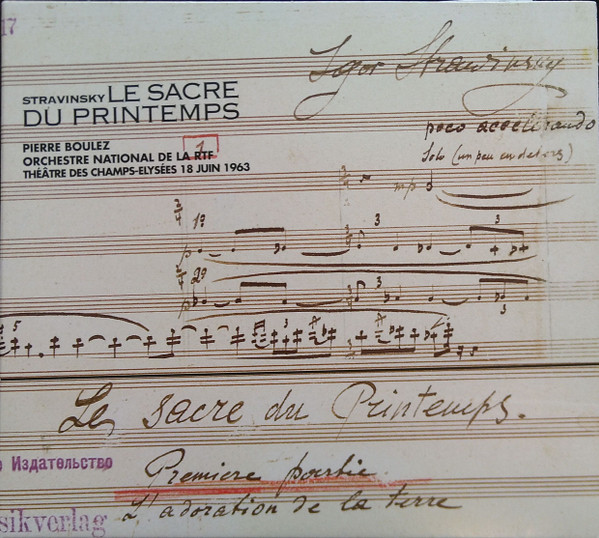 17
Igor Strawinsky
STRAVINSKY LE SACRE
DU PRINTEMPS
poco accelerando
PIERRE BOULEZ
1
Solo (un peu en dehors)
ORCHESTRE NATIONAL DE LA RTF
THÉÂTRE DES CHAMPS-ELYSÉES 18 JUIN 1963
mp
3
4
1º
3
3
p
2
4
2º
p
3
5
3
3
Le sacre du Printemps.
Издательство
Premiere partie
L'adoration de la terre
sikverlag